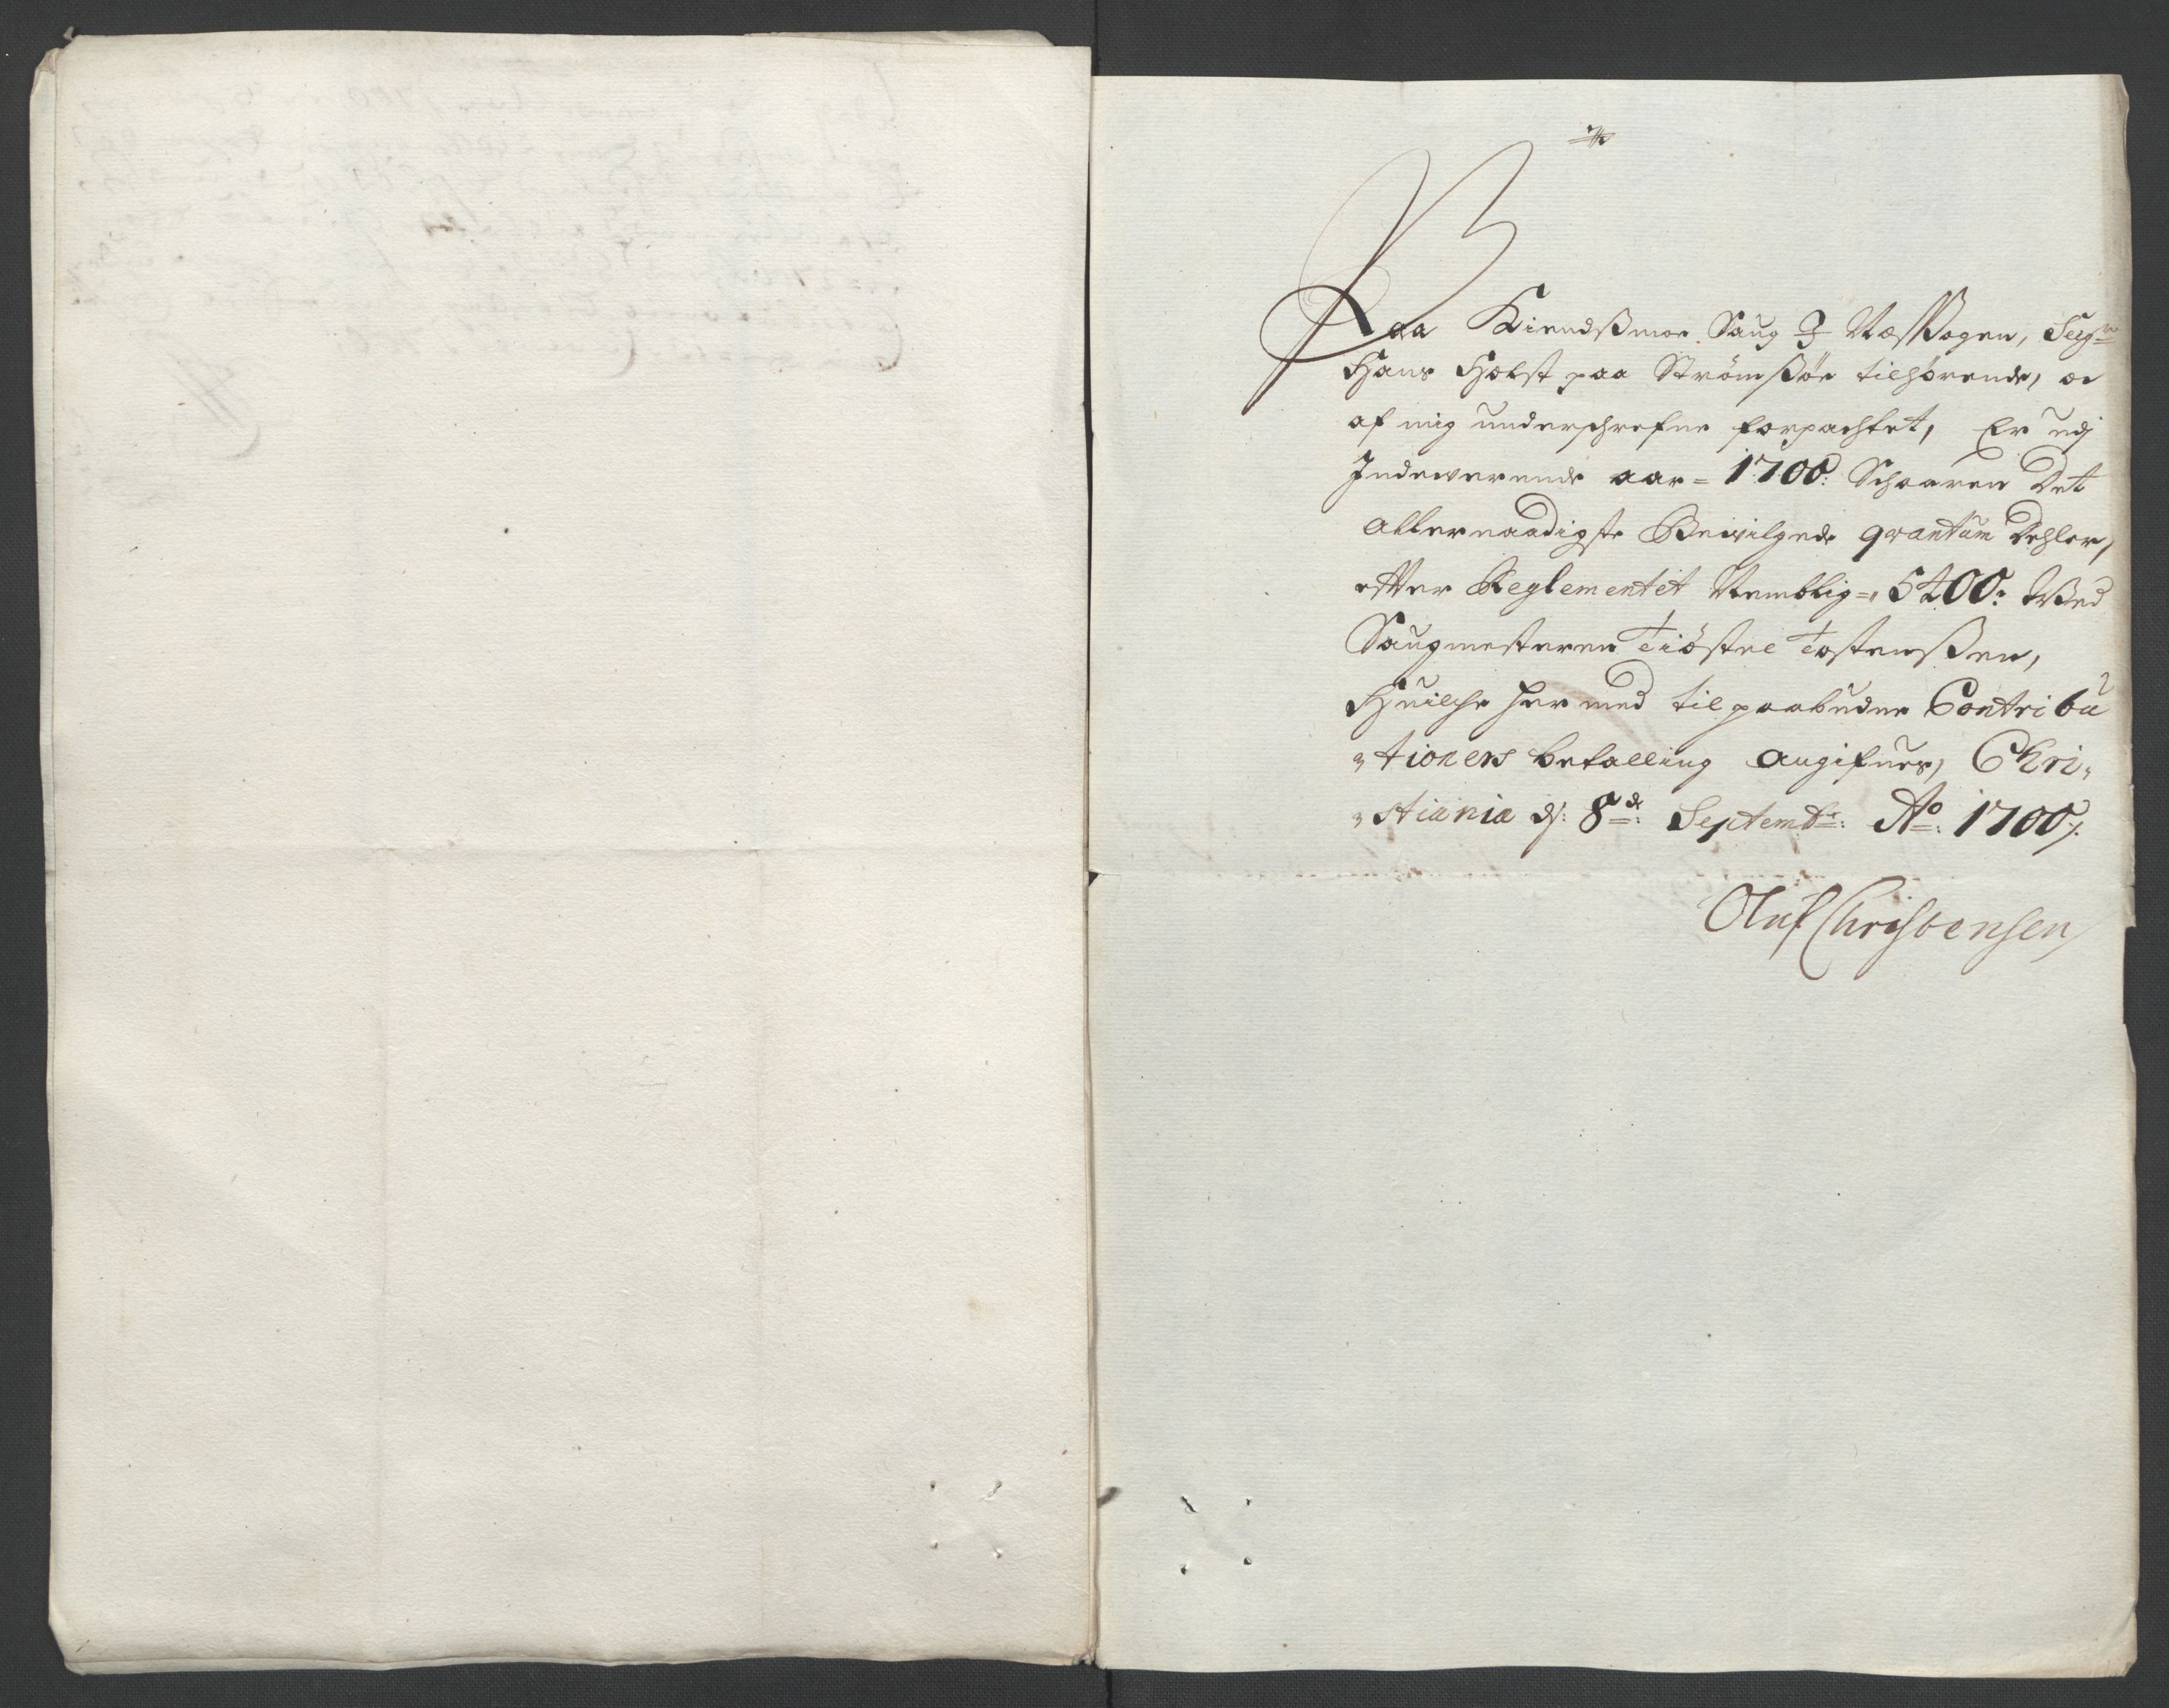 Paa Kiendsmoe Saug J Næssogen, Seigr
Hans Holst paa Strømsøe tilhørende, oc
af mig underschrefne forpachtet, Er udj
Indeverende aar = 1700: Schaaren Det
allernaadigste Bevilgede qvantum Dehler,
efter Reglementet Nemblig =, 5400: Ved
Saugmesteren Tiøstel Tostenssen,
Huilche hermed til paabudne Contribu
,tioners betalling angifues, Chri,
,stiania dj: 8de: Septembr: Ao: 1700 /.
Oluf Christensen